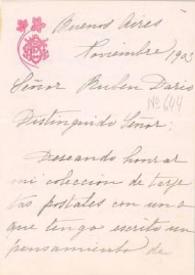 Buenos Aires
Noviembre 1903
Señor Ruben Dario
Nº 644
Distinguido Señor:
Deseando honrar
mi coleccion de tarje
tas postales con una
que tenga escrito un
pensamiento de